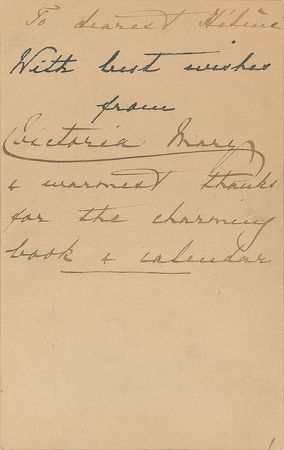 To dearest Hélène
With best wishes
from
Victoria Mary
& warmest thanks
for the charming
book & calendar